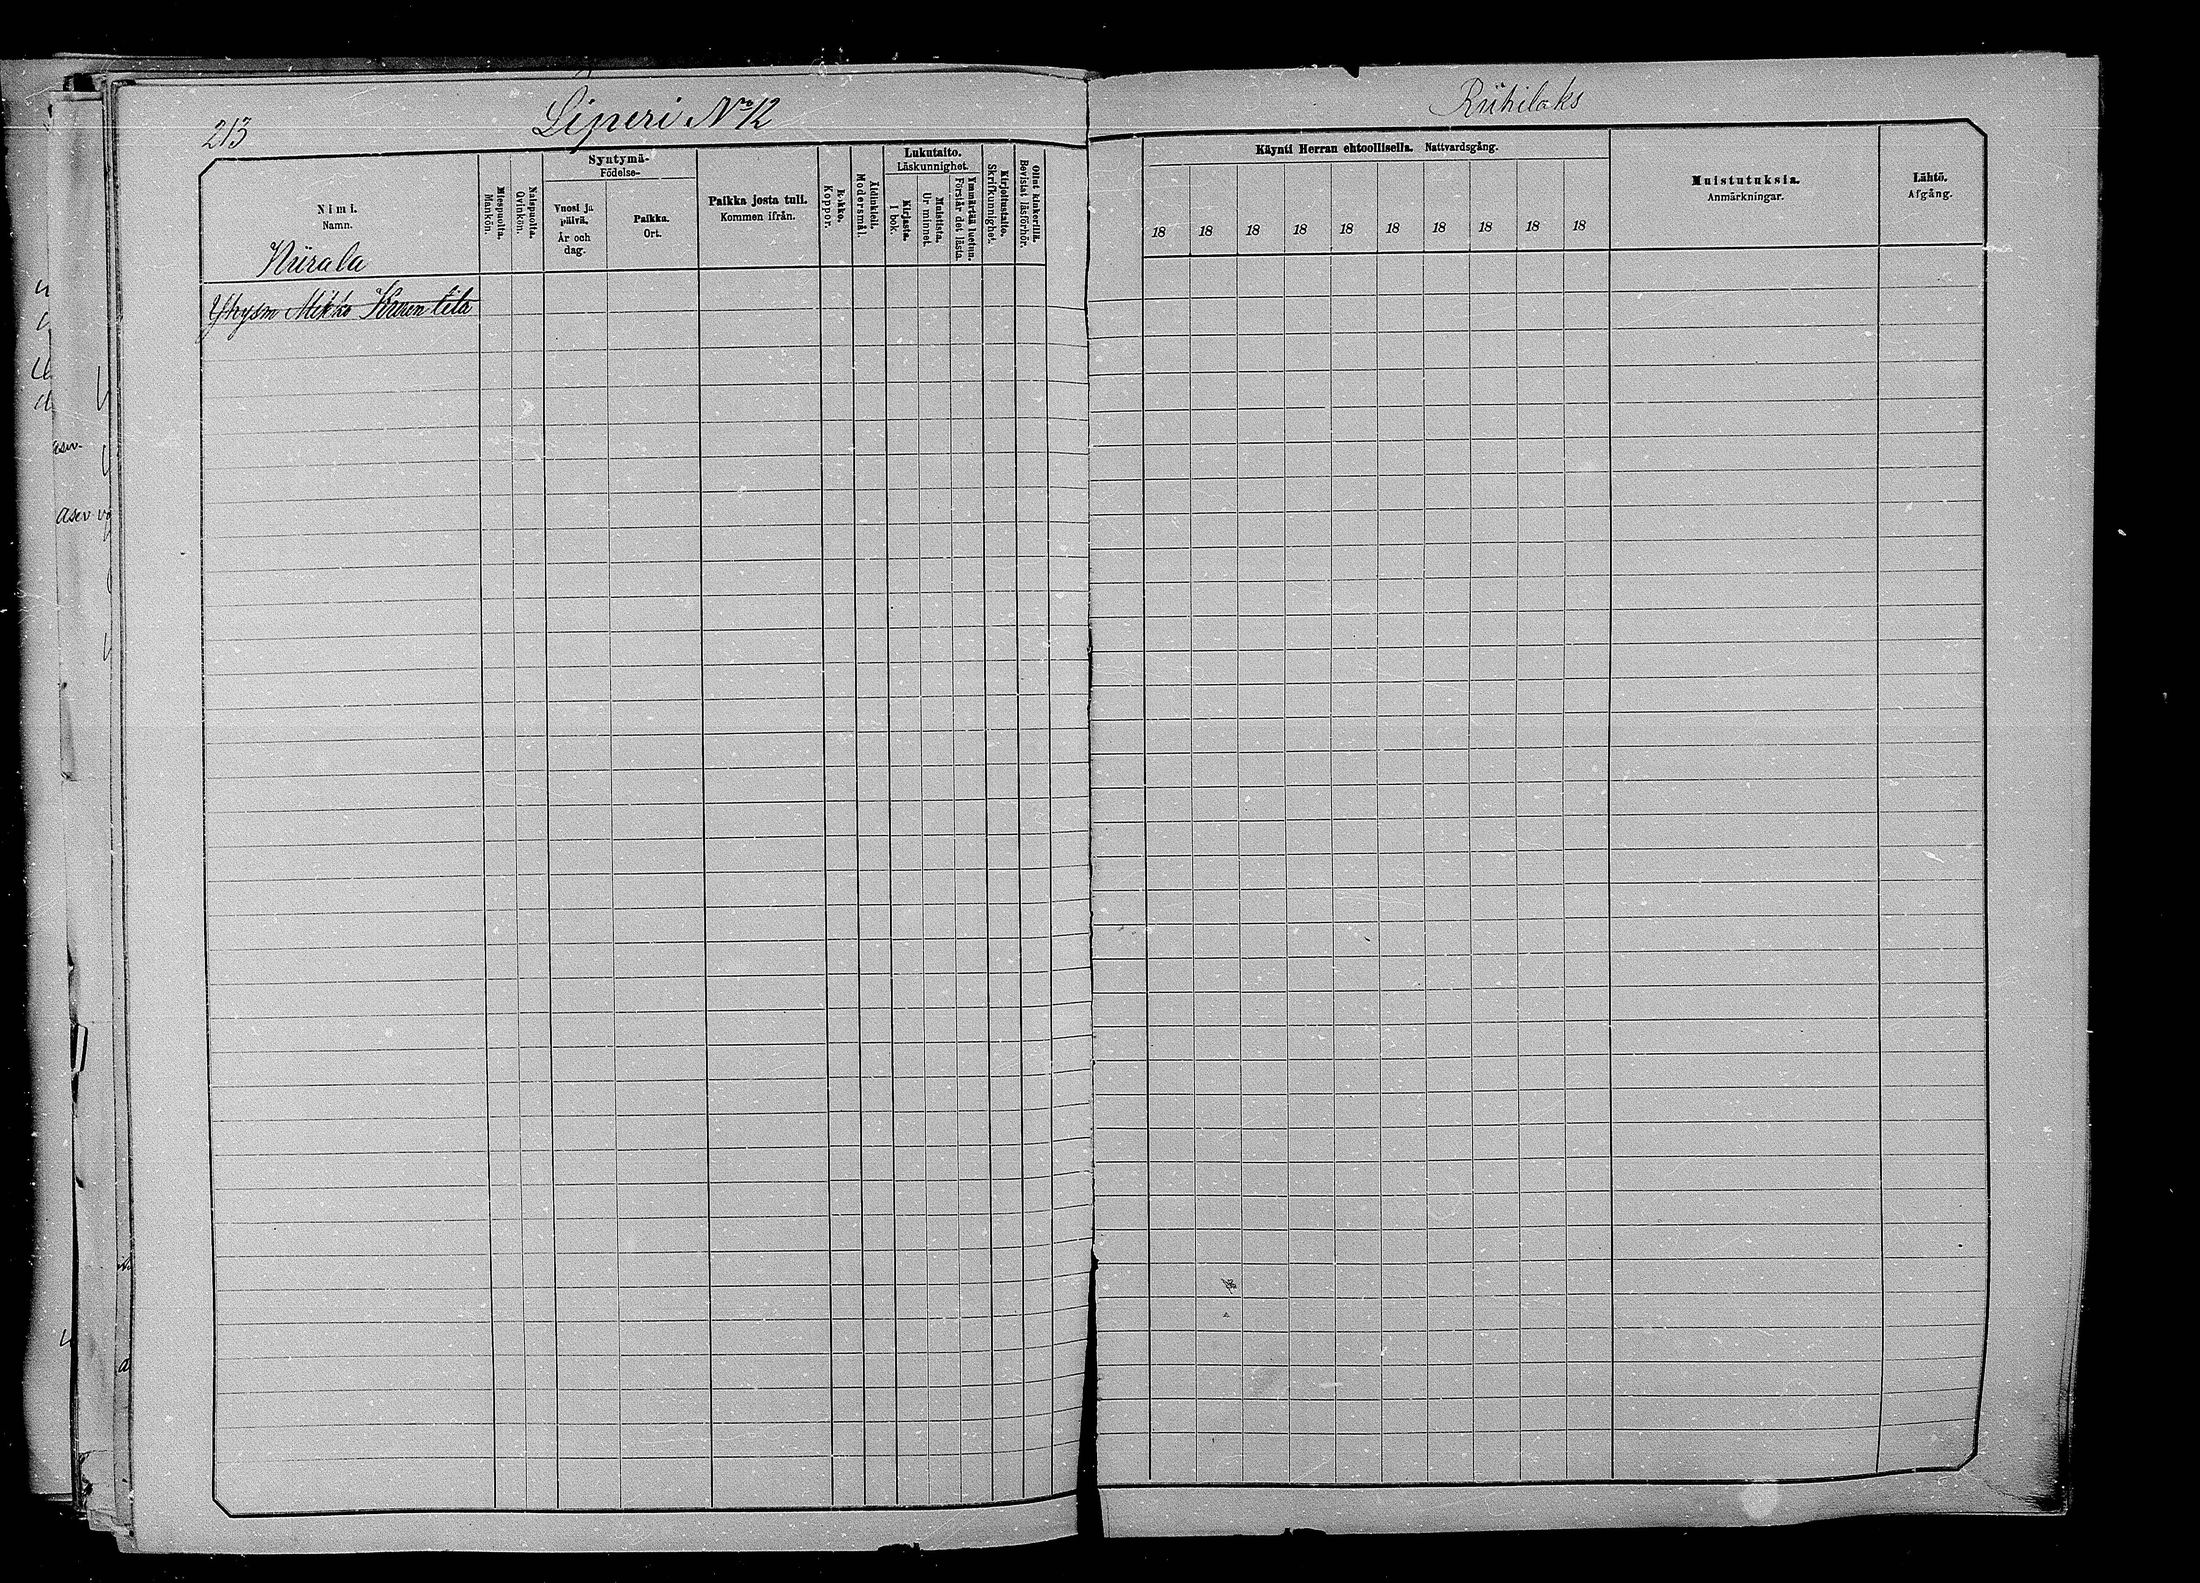 213
Liperi No 12
Riihilaks
Nimi.
Namn.
Miespuolta.
Mankön.
Naispuolta.
Qvinkön.
Syntymä-
Födelse-
Vuosi ja
päivä.
År och
dag.
Paikka.
Ort.
Paikka josta tuli.
Kommen ifrån.
Rokko.
Koppor.
Äidinkieli.
Modersmål.
Lukutaito.
Läskunnighet.
Kirjasta.
I bok.
Muistista.
Ur minnet.
Ymmärtää luetun.
Förstår det lästa.
Kirjoitustaito.
Skrifkunnighet.
Ollut kinkerillä.
Bevistat läsförhör.
Käynti Herran ehtoollisella. Nattvardsgång.
18 18 18 18 18 18 18 18 18 18
Muistutuksia.
Anmärkningar.
Lähtö.
Afgång.
Niirala
Yhysm Mikko Kruun tila
asev.
asev